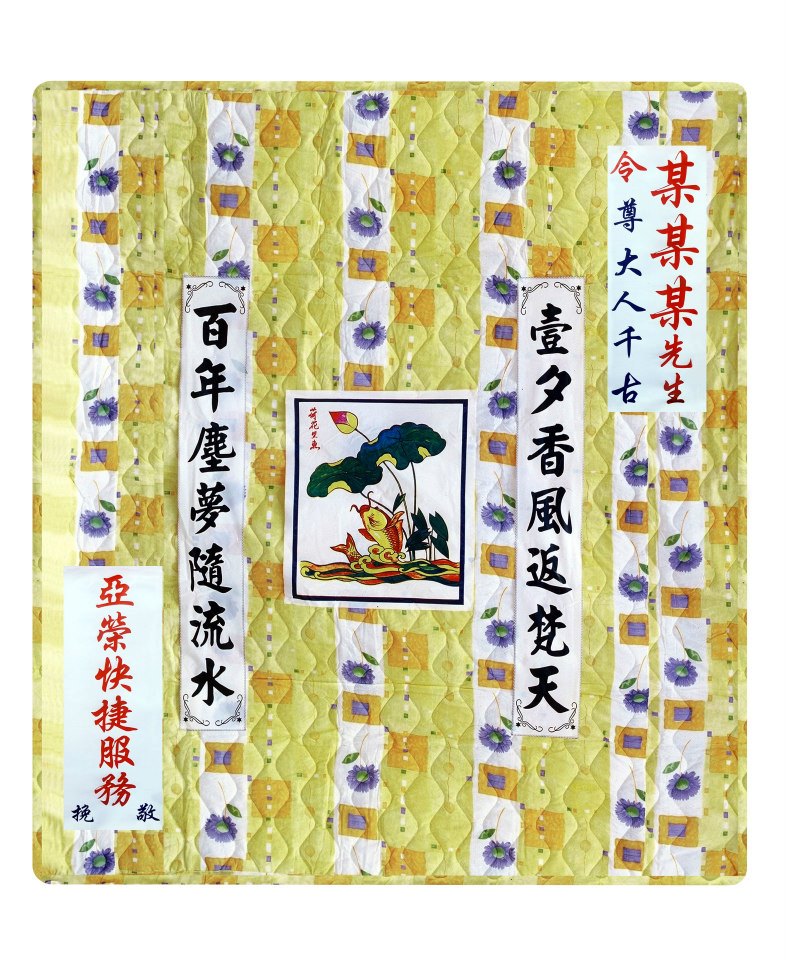 某某某先生
令尊大人千古
壹夕香風返梵天
荷花里魚
百年塵夢隨流水
亞榮快捷服務
敬挽